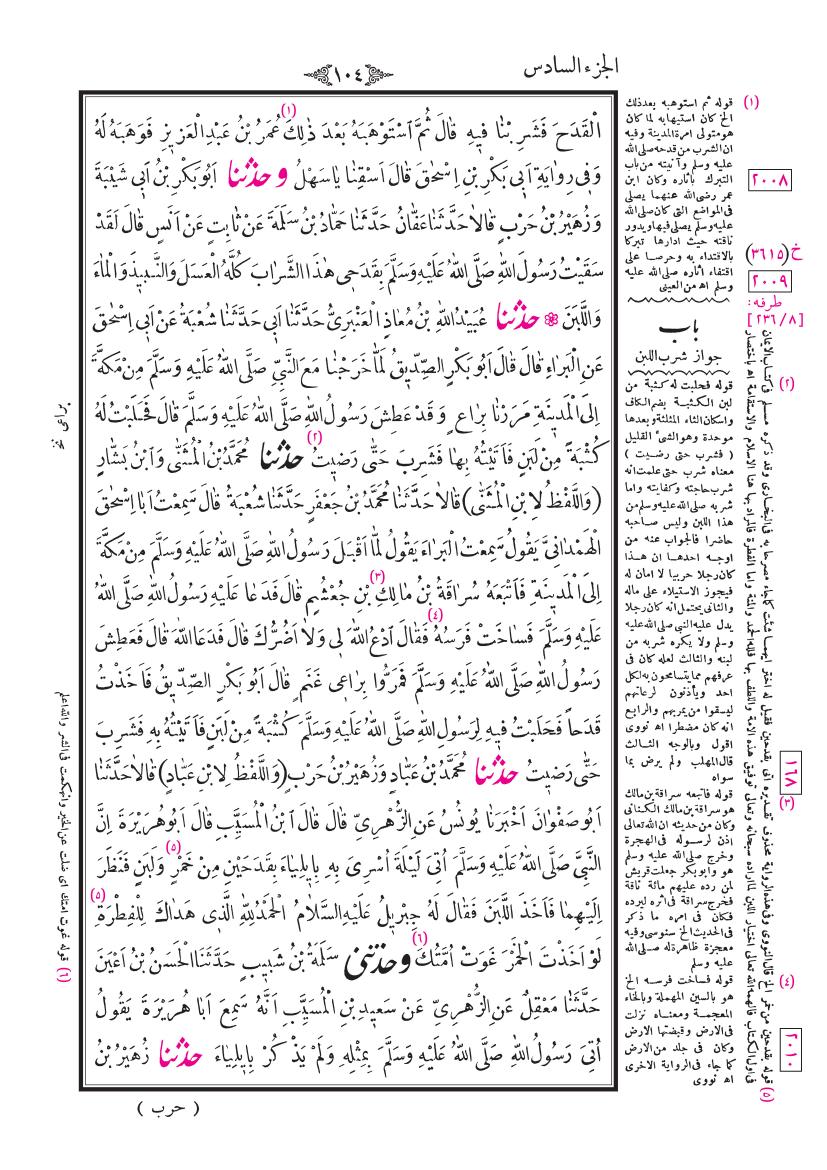 الجزء السادس
١٠٤
الْقَدَحَ فَشَرِبْنَا فِيهِ قَالَ ثُمَّ اسْتَوْهَبَهُ بَعْدَ ذٰلِكَ (١) عُمَرُ بْنُ عَبْدِ الْعَزِيزِ فَوَهَبَهُ لَهُ
وَفِي رِوَايَةِ أَبِي بَكْرِ بْنِ إِسْحٰقَ قَالَ اسْقِنَا يَا سَهْلُ وحدثنا أَبُو بَكْرِ بْنُ أَبِي شَيْبَةَ
وَزُهَيْرُ بْنُ حَرْبٍ قَالَا حَدَّثَنَا عَفَّانُ حَدَّثَنَا حَمَّادُ بْنُ سَلَمَةَ عَنْ ثَابِتٍ عَنْ أَنَسٍ قَالَ لَقَدْ
سَقَيْتُ رَسُولَ اللهِ صَلَّى اللهُ عَلَيْهِ وَسَلَّمَ بِقَدَحِي هٰذَا الشَّرَابَ كُلَّهُ الْعَسَلَ وَالنَّبِيذَ وَالْمَاءَ
وَاللَّبَنَ ❁ حدثنا عُبَيْدُ اللهِ بْنُ مُعَاذٍ الْعَنْبَرِيُّ حَدَّثَنَا أَبِي حَدَّثَنَا شُعْبَةُ عَنْ أَبِي إِسْحٰقَ
عَنِ الْبَرَاءِ قَالَ قَالَ أَبُو بَكْرٍ الصِّدِّيقُ لَمَّا خَرَجْنَا مَعَ النَّبِيِّ صَلَّى اللهُ عَلَيْهِ وَسَلَّمَ مِنْ مَكَّةَ
إِلَى الْمَدِينَةِ مَرَرْنَا بِرَاعٍ وَقَدْ عَطِشَ رَسُولُ اللهِ صَلَّى اللهُ عَلَيْهِ وَسَلَّمَ قَالَ فَحَلَبْتُ لَهُ
كُثْبَةً مِنْ لَبَنٍ فَأَتَيْتُهُ بِهَا فَشَرِبَ حَتَّى رَضِيتُ (٢) حدثنا مُحَمَّدُ بْنُ الْمُثَنَّى وَابْنُ بَشَّارٍ
(وَاللَّفْظُ لِابْنِ الْمُثَنَّى) قَالَا حَدَّثَنَا مُحَمَّدُ بْنُ جَعْفَرٍ حَدَّثَنَا شُعْبَةُ قَالَ سَمِعْتُ أَبَا إِسْحٰقَ
الْهَمْدَانِيَّ يَقُولُ سَمِعْتُ الْبَرَاءَ يَقُولُ لَمَّا أَقْبَلَ رَسُولُ اللهِ صَلَّى اللهُ عَلَيْهِ وَسَلَّمَ مِنْ مَكَّةَ
إِلَى الْمَدِينَةِ فَأَتْبَعَهُ سُرَاقَةُ بْنُ مَالِكِ (٣) بْنِ جُعْشُمٍ قَالَ فَدَعَا عَلَيْهِ رَسُولُ اللهِ صَلَّى اللهُ
عَلَيْهِ وَسَلَّمَ فَسَاخَتْ فَرَسُهُ (٤) فَقَالَ ادْعُ اللهَ لِي وَلَا أَضُرُّكَ قَالَ فَدَعَا اللهَ قَالَ فَعَطِشَ
رَسُولُ اللهِ صَلَّى اللهُ عَلَيْهِ وَسَلَّمَ فَمَرُّوا بِرَاعِي غَنَمٍ قَالَ أَبُو بَكْرٍ الصِّدِّيقُ فَأَخَذْتُ
قَدَحاً فَحَلَبْتُ فِيهِ لِرَسُولِ اللهِ صَلَّى اللهُ عَلَيْهِ وَسَلَّمَ كُثْبَةً مِنْ لَبَنٍ فَأَتَيْتُهُ بِهِ فَشَرِبَ
حَتَّى رَضِيتُ حدثنا مُحَمَّدُ بْنُ عَبَّادٍ وَزُهَيْرُ بْنُ حَرْبٍ (وَاللَّفْظُ لِابْنِ عَبَّادٍ) قَالَا حَدَّثَنَا
أَبُو صَفْوَانَ أَخْبَرَنَا يُونُسُ عَنِ الزُّهْرِيِّ قَالَ قَالَ ابْنُ الْمُسَيَّبِ قَالَ أَبُو هُرَيْرَةَ إِنَّ
النَّبِيَّ صَلَّى اللهُ عَلَيْهِ وَسَلَّمَ أُتِيَ لَيْلَةَ أُسْرِيَ بِهِ بِإِيلِيَاءَ بِقَدَحَيْنِ (٥) مِنْ خَمْرٍ وَلَبَنٍ فَنَظَرَ
إِلَيْهِمَا فَأَخَذَ اللَّبَنَ فَقَالَ لَهُ جِبْرِيلُ عَلَيْهِ السَّلَامُ الْحَمْدُ لِلهِ الَّذِي هَدَاكَ لِلْفِطْرَةِ (٥)
لَوْ أَخَذْتَ الْخَمْرَ غَوَتْ أُمَّتُكَ (٦) وحدثني سَلَمَةُ بْنُ شَبِيبٍ حَدَّثَنَا الْحَسَنُ بْنُ أَعْيَنَ
حَدَّثَنَا مَعْقِلٌ عَنِ الزُّهْرِيِّ عَنْ سَعِيدِ بْنِ الْمُسَيَّبِ أَنَّهُ سَمِعَ أَبَا هُرَيْرَةَ يَقُولُ
أُتِيَ رَسُولُ اللهِ صَلَّى اللهُ عَلَيْهِ وَسَلَّمَ بِمِثْلِهِ وَلَمْ يَذْكُرْ بِإِيلِيَاءَ حدثنا زُهَيْرُ بْنُ
( حرب )
(١) قوله ثم استوهبه بعد ذلك
الخ كان استيهابه لما كان
هو متولى امرة المدينة وفيه
ان الشرب من قدحه صلى الله
عليه وسلم وآنيته من باب
التبرك بآثاره وكان ابن
عمر رضى الله عنهما يصلى
فى المواضع التى كان صلى الله
عليه وسلم يصلى فيها ويدور
ناقته حيث ادارها تبركا
بالاقتداء به وحرصا على
اقتفاء آثاره صلى الله عليه
وسلم اه من العينى
باب
جواز شرب اللبن
(٢) قوله فحلبت له كثبة من
لبن الكثبة بضم الكاف
واسكان الثاء المثلثة وبعدها
موحدة وهو الشئ القليل
( فشرب حتى رضيت )
معناه شرب حتى علمت انه
شرب حاجته وكفايته واما
شربه صلى الله عليه وسلم من
هذا اللبن وليس صاحبه
حاضرا فالجواب عنه من
اوجه احدها ان هذا
كان رجلا حربيا لا امان له
فيجوز الاستيلاء على ماله
والثانى يحتمل انه كان رجلا
يدل عليه النبى صلى الله عليه
وسلم ولا يكره شربه من
لبنه والثالث لعله كان فى
عرفهم مما يتسامحون به لكل
احد ويأذنون لرعاتهم
ليسقوا من يمر بهم والرابع
انه كان مضطرا اه نووى
اقول وبالوجه الثالث
قال المهلب ولم يرض بما
سواه
(٣) قوله فاتبعه سراقة بن مالك
هو سراقة بن مالك الكنانى
وكان من حديثه ان الله تعالى
اذن لرسوله فى الهجرة
وخرج صلى الله عليه وسلم
هو وابو بكر جعلت قريش
لمن رده عليهم مائة ناقة
فخرج سراقة فى اثره ليرده
فكان فى امره ما ذكر
فى الحديث الخ سنوسى وفيه
معجزة ظاهرة له صلى الله
عليه وسلم
(٤) قوله فساخت فرسه الخ
هو بالسين المهملة وبالخاء
المعجمة ومعناه نزلت
فى الارض وقبضتها الارض
وكان فى جلد من الارض
كما جاء فى الرواية الاخرى
اه نووى
٢٠٠٨
خ (٣٦١٥)
٢٠٠٩
طرفه:
[٢٣٦/٨]
١٦٨
٢٠١٠
(٥) قوله بقدحين من خمر الخ قال النووى وفى هذه الرواية محذوف تقديره اتى بقدحين فقيل له اختر ايهما شئت كما جاء مصرحا به فى البخارى وقد ذكره مسلم فى كتاب الايمان
فى اول الكتاب فالهمه الله تعالى اختيار اللبن لما اراده سبحانه وتعالى توفيق هذه الامة واللطف بها فلله الحمد والمنة واما الفطرة فالمراد بها هنا الاسلام والاستقامة اه باختصار
(٦) قوله غوت امتك اى ضلت عن الخير وانهمكت فى الشر والله اعلم